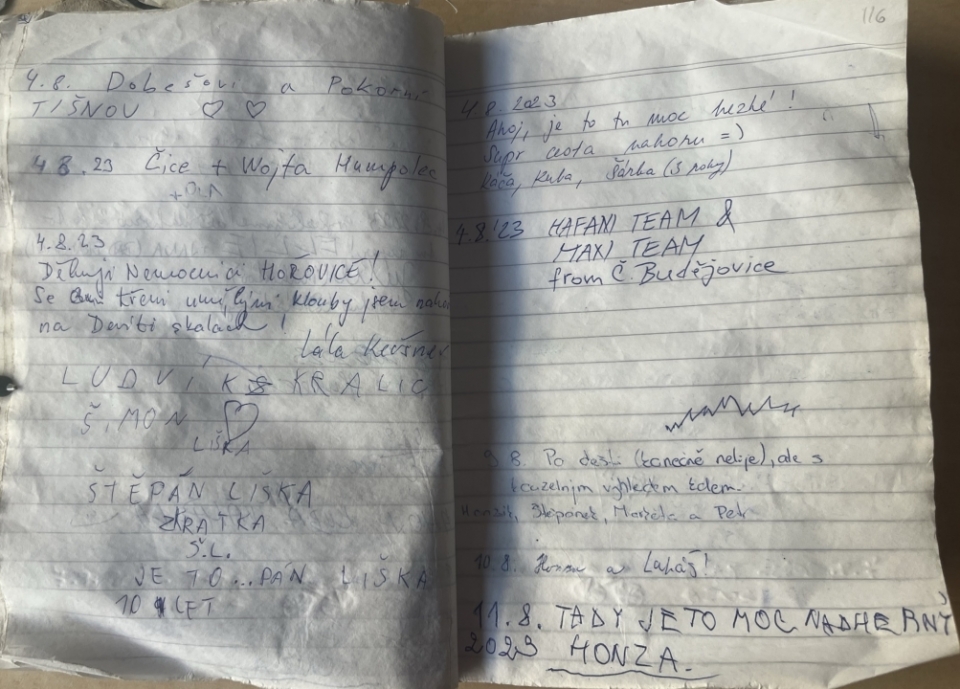 4.8. Dobešovi a Pokorní
TIŠNOV
4.8.23 Čice + Wojta Humpolec
4.8.23
Děkuji Nemocnici HOŘOVICE!
Se třemi umělými klouby jsem
na Devíti skalách!
Lála
LUDVÍK KRALIC
ŠIMON
LIŠKA
ŠTĚPÁN LIŠKA
ZKRATKA
Š.L.
JE TO...PÁN LIŠKA
10 LET
116
4.8.2023
Ahoj, je to tu moc hezké!
Supr cesta nahoru =)
Káča, Kuba, Šárka (3 roky)
4.8.'23 HAFANI TEAM &
MAXI TEAM
from Č. Budějovice
9.8. Po dešti (konečně nelije), ale s
kouzelným výhledem kolem.
Štěpánek, Markéta a Petr
10.8. a Lukáš!
11.8. TADY JE TO MOC NADHERNÝ
2023 HONZA.